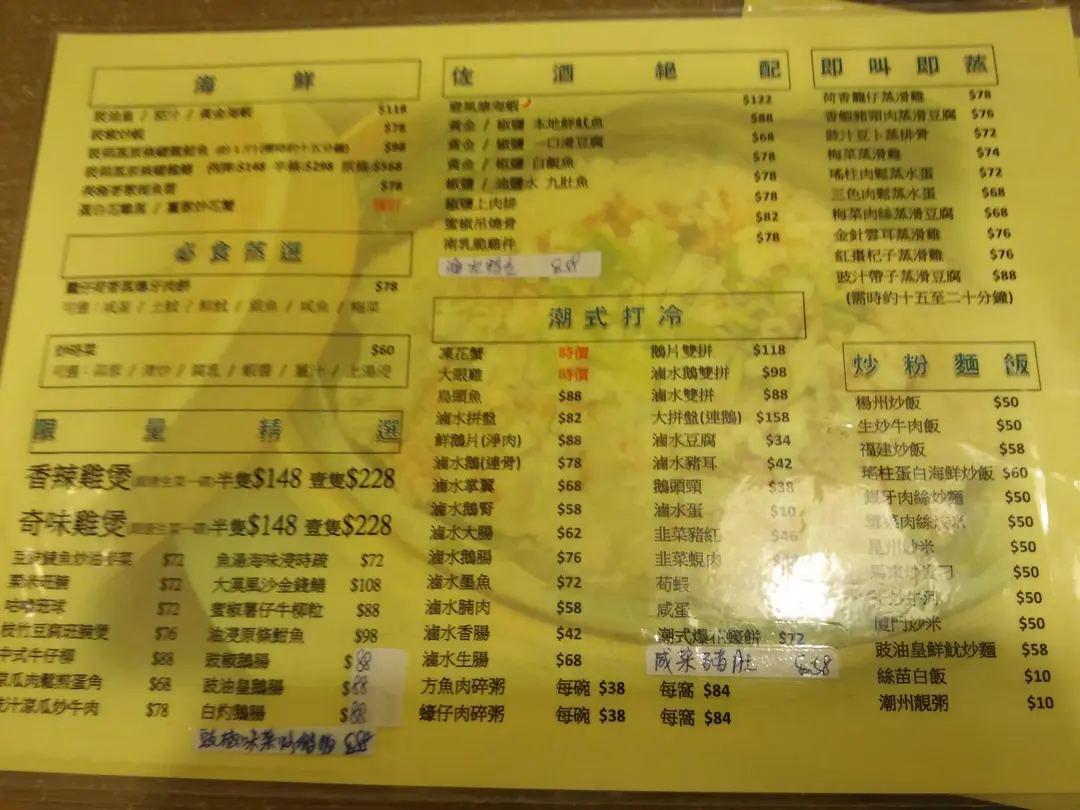 海鮮
豉油皇 / 茄汁 / 黃金海蝦 $118
豉椒炒蜆 $78
$98
$148 半條$298 原條$568
$78
必食蒸選
$78
可選：咸蛋 / 土魷 / 鮮魷 / 銀魚 / 咸魚 / 梅菜
炒時菜 $60
可選：蒜蓉 / 清炒 / 腐乳 / 蝦醬 / 薑汁 / 上湯浸
限量精選
香辣雞煲 半隻$148 壹隻$228
奇味雞煲 半隻$148 壹隻$228
豆豉鯪魚炒油麥菜 $72
粟米斑腩 $72
咕嚕斑球 $72
枝竹豆腐斑腩煲 $76
中式牛仔柳 $88
涼瓜肉鬆煎蛋角 $68
汁涼瓜炒牛肉 $78
魚湯海味浸時蔬 $72
大漠風沙金錢鱔 $108
蜜椒薯仔牛柳粒 $88
油浸原條魽魚 $98
豉椒鵝腸 $88
豉油皇鵝腸 $88
白灼鵝腸 $88
佐酒絕配
避風塘海蝦 $122
黃金 / 椒鹽 本地鮮魷魚 $88
黃金 / 椒鹽 一口滑豆腐 $68
黃金 / 椒鹽 白飯魚 $78
椒鹽 / 滷鹽水 九肚魚 $78
椒鹽上肉排 $78
蜜椒吊燒骨 $82
南乳脆雞件 $78
滷水 $58
潮式打冷
凍花蟹 時價
大眼雞 時價
烏頭魚 $88
滷水拼盤 $82
鮮鵝片(淨肉) $88
滷水鵝(連骨) $78
滷水掌翼 $68
滷水鵝腎 $58
滷水大腸 $62
滷水鵝腸 $76
滷水墨魚 $72
滷水腩肉 $58
滷水香腸 $42
滷水生腸 $68
方魚肉碎粥 每碗 $38 每窩 $84
蠔仔肉碎粥 每碗 $38 每窩 $84
鵝片雙拼 $118
滷水鵝雙拼 $98
滷水雙拼 $88
大拼盤(連鵝) $158
滷水豆腐 $34
滷水豬耳 $42
鵝頭頸 $38
滷水蛋 $10
韭菜豬紅 $46
韭菜蜆肉
荀蝦
咸蛋
潮式爆花蠔餅 $72
咸菜豬肚 $58
即叫即蒸
荷香龍仔蒸滑雞 $78
香蝦豬頸肉蒸滑豆腐 $76
豉汁豆卜蒸排骨 $72
梅菜蒸滑雞 $74
瑤柱肉鬆蒸水蛋 $72
三色肉鬆蒸水蛋 $68
梅菜肉絲蒸滑豆腐 $68
金針雲耳蒸滑雞 $76
紅棗杞子蒸滑雞 $76
豉汁帶子蒸滑豆腐 $88
(需時約十五至二十分鐘)
炒粉麵飯
楊州炒飯 $50
生炒牛肉飯 $50
福建炒飯 $58
瑤柱蛋白海鮮炒飯 $60
銀牙肉絲炒麵 $50
肉絲炒米 $50
星州炒米 $50
$50
干炒牛河 $50
廈門炒米 $50
豉油皇鮮魷炒麵 $58
絲苗白飯 $10
潮州靚粥 $10